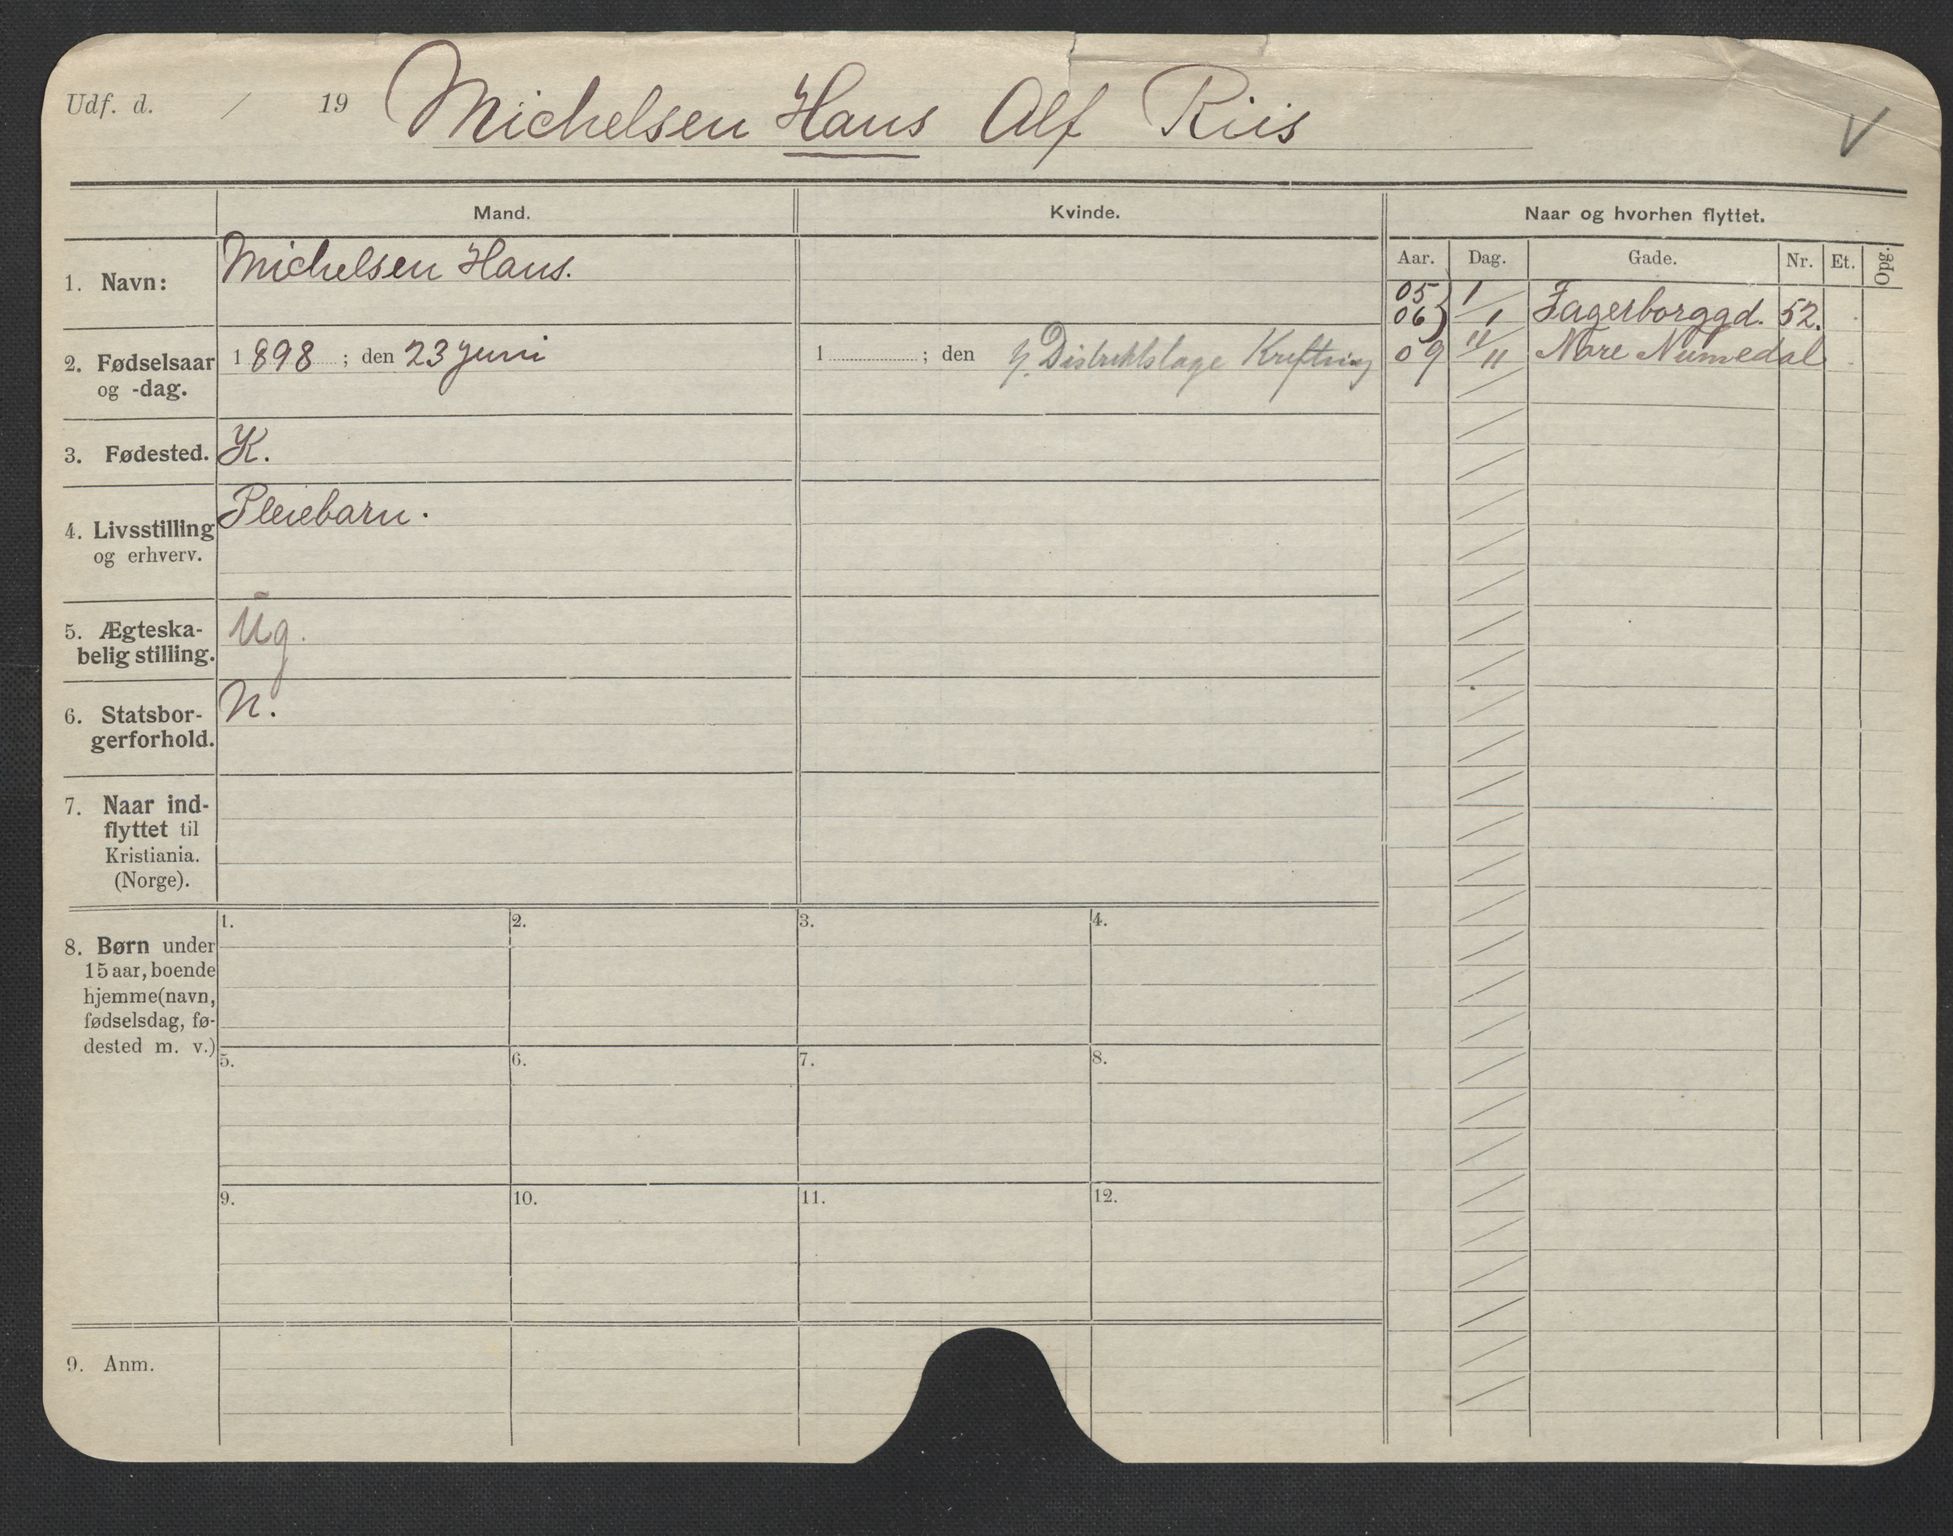 Udf. d. / 19 Michelsen Hans Alf Riis V
Mand. Kvinde. Naar og hvorhen flyttet.
Aar. Dag. Gade. Nr. Et. Opg.
1. Navn: Michelsen Hans.
05
06} 1/1 Fagerborggd. 52.
2. Fødselsaar og -dag. 1898; den 23 juni 1 ; den Distriktslæge Krefting
09 11/11 Nore Numedal
3. Fødested. K.
4. Livsstilling og erhverv. Pleiebarn.
5. Ægteska-
belig stilling. Ug.
6. Statsbor-
gerforhold. N.
7. Naar ind-
flyttet til
Kristiania.
(Norge).
8. Børn under
15 aar, boende
hjemme (navn,
fødselsdag, fø-
dested m. v.)
1. 2. 3. 4.
5. 6. 7. 8.
9. 10. 11. 12.
9. Anm.